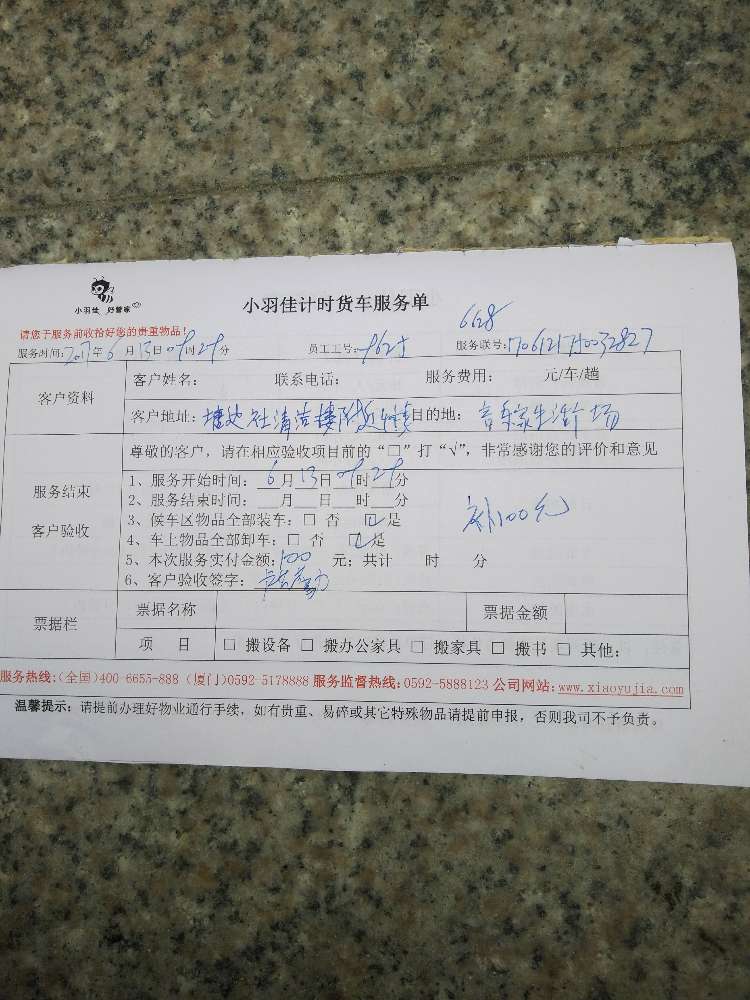 小羽佳 好管家
小羽佳计时货车服务单
628
请您于服务前收拾好您的贵重物品!
服务时间:2017年6月13日 时 分 员工工号: 服务联号:
客户资料
客户姓名: 联系电话: 服务费用: 元/车/趟
客户地址: 目的地:
服务结束
客户验收
尊敬的客户，请在相应验收项目前的“□”打“√”，非常感谢您的评价和意见
1、服务开始时间: 6月13日 时 分
2、服务结束时间: 月 日 时 分
补100元
3、侯车区物品全部装车: □ 否 ☑ 是
4、车上物品全部卸车: □ 否 ☑ 是
5、本次服务实付金额:100 元; 共计 时 分
6、客户验收签字:
票据栏
票据名称 票据金额
项 目 □ 搬设备 □ 搬办公家具 □ 搬家具 □ 搬书 □ 其他:
服务热线:(全国)400-6655-888 (厦门)0592-5178888 服务监督热线:0592-5888123 公司网站:www.xiaoyujia.com
温馨提示: 请提前办理好物业通行手续，如有贵重、易碎或其它特殊物品请提前申报，否则我司不予负责。